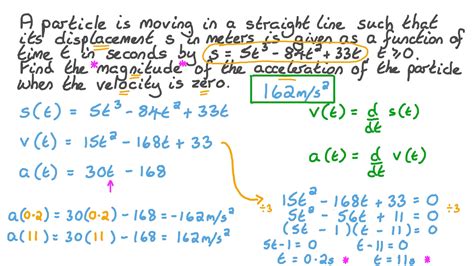 A particle is moving in a straight line such that
its displacement s in meters is given as a function of
time t in seconds by s = 5t³ - 84t² + 33t  t ⩾ 0.
Find the *magnitude* of the acceleration of the particle
when the velocity is zero.
162m/s²
s(t) = 5t³ - 84t² + 33t
v(t) = 15t² - 168t + 33
a(t) = 30t - 168
a(0.2) = 30(0.2) - 168 = -162m/s²
a(11) = 30(11) - 168 = 162m/s²
v(t) = d/dt s(t)
a(t) = d/dt v(t)
÷3 15t² - 168t + 33 = 0 ÷3
5t² - 56t + 11 = 0
(5t - 1)(t - 11) = 0
5t-1 = 0  t-11 = 0
t = 0.2s *  t = 11s *